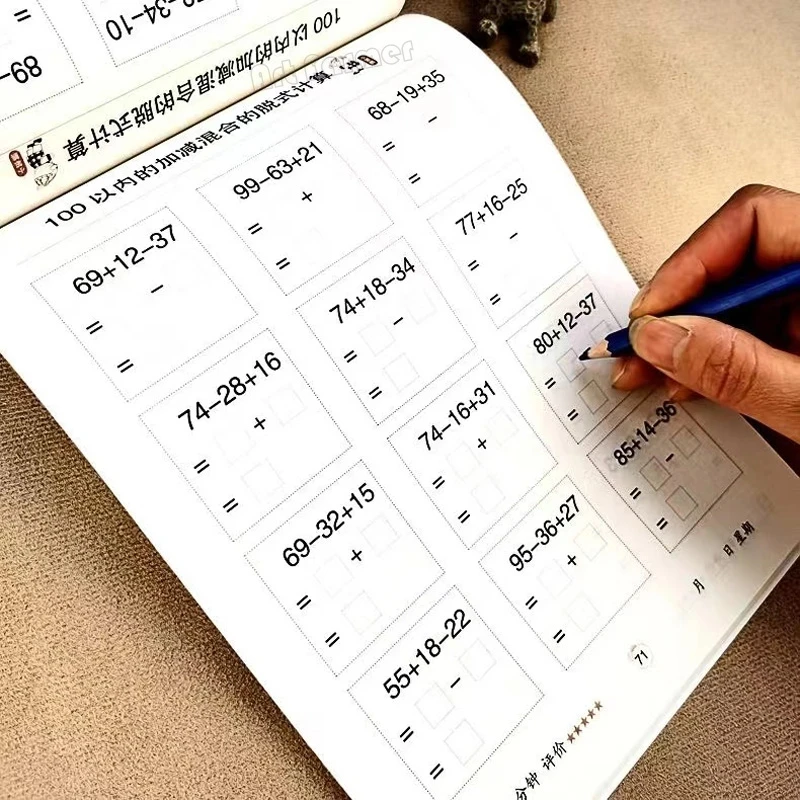 89−
−34−10
100以内的加减混合的脱式计算
100以内的加减混合的脱式计算
Art Corner
69+12−37
−
=
=
99−63+21
+
=
=
68−19+35
−
=
=
74−28+16
+
=
=
74+18−34
−
=
=
77+16−25
−
=
=
69−32+15
+
=
=
74−16+31
+
=
=
80+12−37
=
=
55+18−22
−
=
=
95−36+27
+
=
=
85+14−36
−
=
=
月 日 星期
71
分钟 评价 ★★★★★